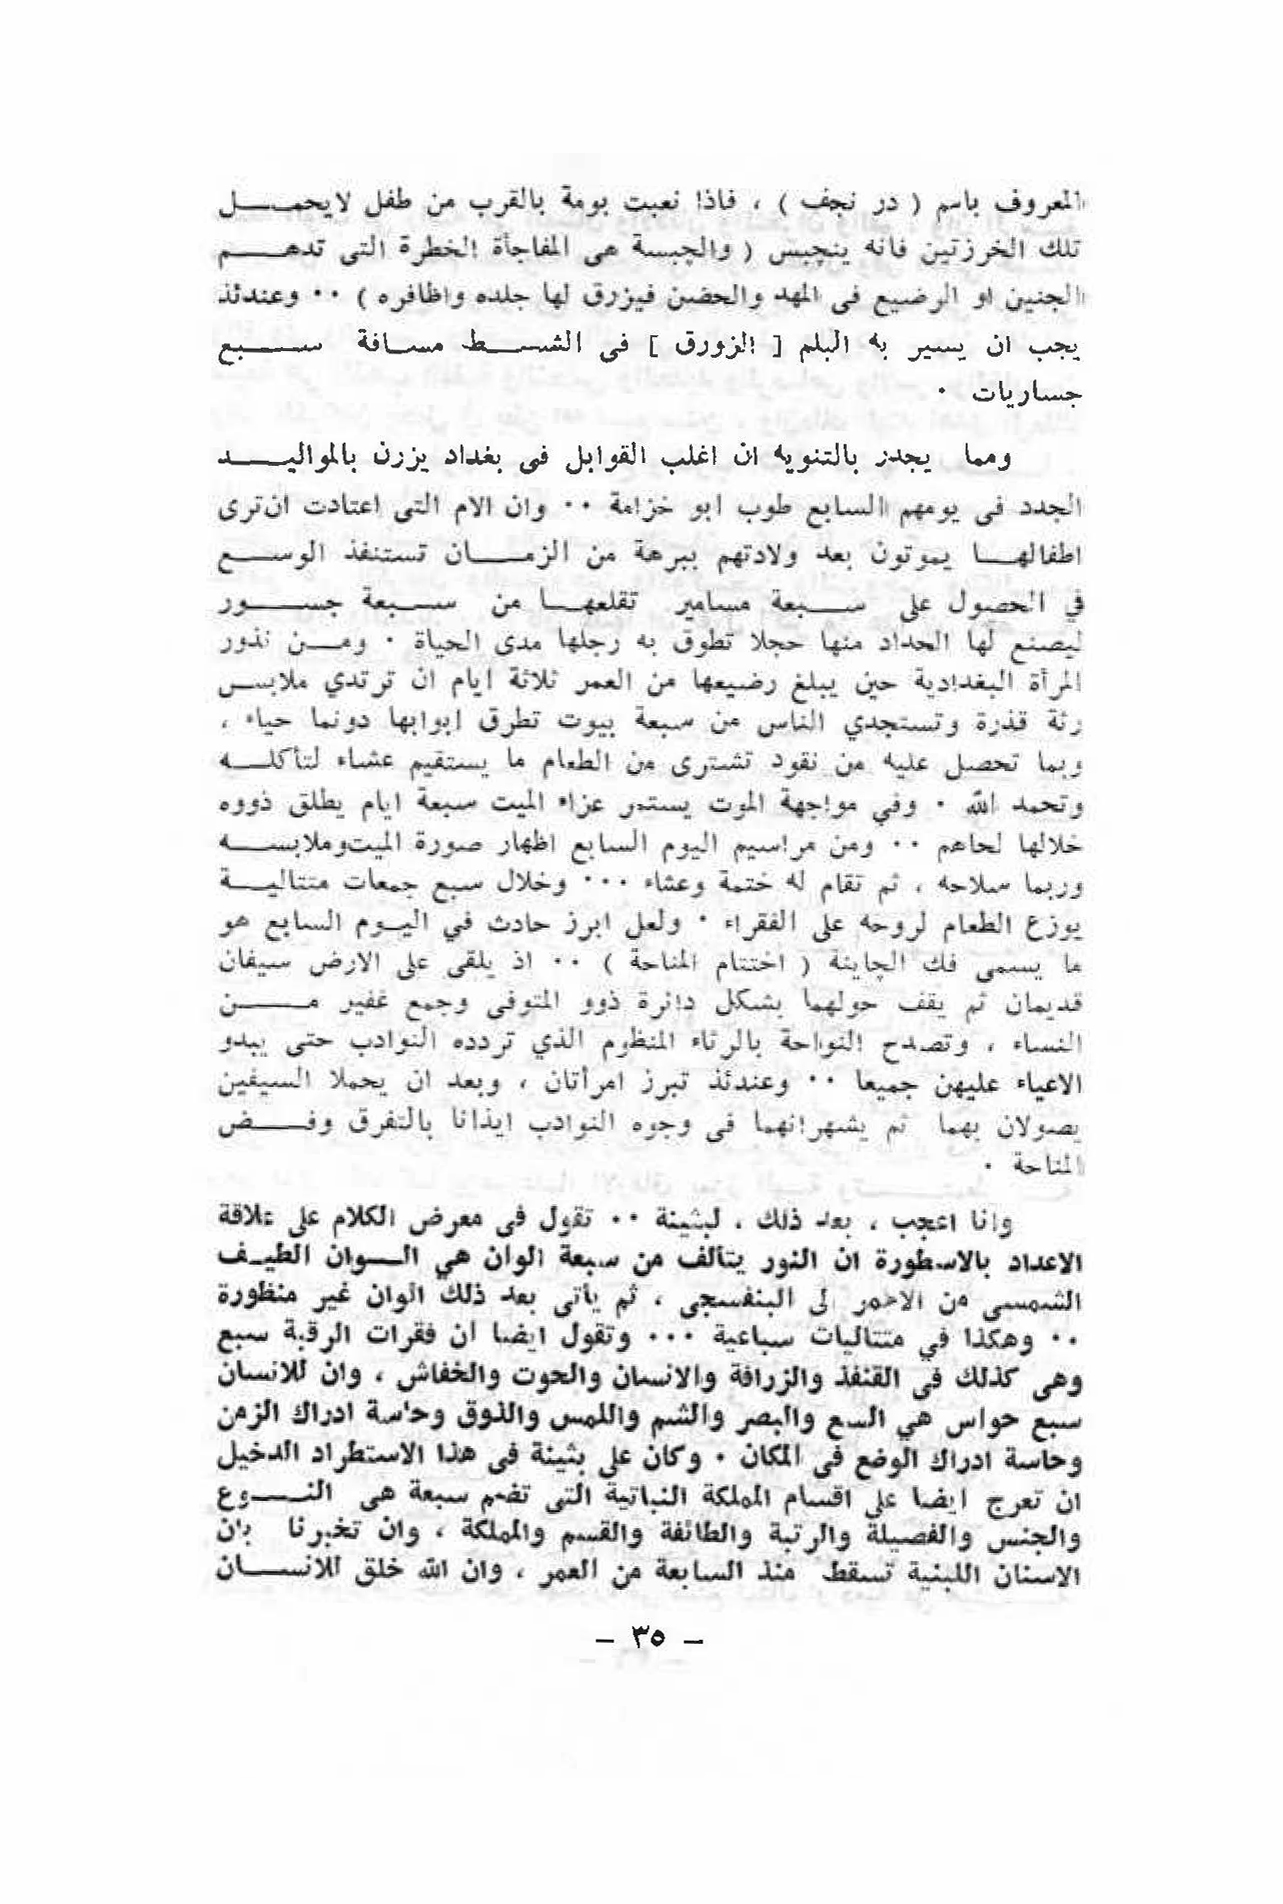 المعروف باسم ( در نجف ) ، فاذا نعبت بومة بالقرب من طفل لايحمـــل
تلك الخرزتين فانه ينچبس ( والچبسة هى المفاجأة الخطرة التى تدهـــم
الجنين او الرضيع فى المهد والحضن فيزرق لها جلده واظافره ) ٠٠ وعندئذ
يجب ان يسير به البلم [ الزورق ] فى الشـــط مسـافة ســـبع
جسـاريات ٠
ومما يجدر بالتنويه ان اغلب القوابل فى بغداد يزرن بالمواليـــد
الجدد فى يومهم السابع طوب ابو خزامة ٠٠ وان الام التى اعتادت ان ترى
اطفالهـــا يموتون بعد ولادتهم ببرهة من الزمـــان تستنفذ الوســـع
في الحصول على ســـبعة مسامير تقلعهـــا من ســـبعة جســـور
ليصنع لها الحداد منها حجلا تطوق به رجلها مدى الحياة ٠ ومـــن نذور
المرأة البغدادية حين يبلغ رضيعها من العمر ثلاثة ايام ان ترتدي ملابـس
رثة قذرة وتستجدي الناس من سبعة بيوت تطرق ابوابها دونما حياء ،
وبما تحصل عليه من نقود تشترى من الطعام ما يستقيم عشاء لتأكلـــه
وتحمد الله ٠ وفي مواجهة الموت يستمر عزاء الميت سبعة ايام يطلق ذووه
خلالها لحاهم ٠٠ ومن مراسيم اليوم السابع اظهار صورة الميت وملابســـه
وربما سلاحه ، ثم تقام له ختمة وعشاء ٠٠٠ وخلال سبع جمعات متتاليـــة
يوزع الطعام لروحه على الفقراء ٠ ولعل ابرز حادث في اليـوم السابع هو
ما يسمى فك الچاينة ( اختتام المناحة ) ٠٠ اذ يلقى على الارض سيفان
قديمان ثم يقف حولهما بشكل دائرة ذوو المتوفى وجمع غفير مـــن
النساء ، وتصدح النواحة بالرثاء المنظوم الذي تردده النوادب حتى يبدو
الاعياء عليهن جميعا ٠٠ وعندئذ تبرز امرأتان ، وبعد ان يحملا السيفين
يصولان بهما ثم يشهرانهما فى وجوه النوادب ايذانا بالتفرق وفـــض
المناحة ٠
وانا اعجب ، بعد ذلك ، لبثينة ٠٠ تقول فى معرض الكلام على علاقة
الاعداد بالاسطورة ان النور يتألف من سبعة الوان هي الـــوان الطيـف
الشمسى من الاحمر الى البنفسجى ، ثم يأتى بعد ذلك الوان غير منظورة
٠٠ وهكذا في متتاليات سباعية ٠٠٠ وتقول ايضا ان فقرات الرقبة سبع
وهى كذلك فى القنفذ والزرافة والانسان والحوت والخفاش ، وان للانسان
سبع حواس هي السمع والبصر والشم واللمس والذوق وحاسة ادراك الزمن
وحاسة ادراك الوضع فى المكان ٠ وكان على بثينة فى هذا الاستطراد الدخيل
ان تعرج ايضا على اقسام المملكة النباتية التى تضم سبعة هى النـــوع
والجنس والفصيلة والرتبة والطائفة والقسم والمملكة ، وان تخبرنا بأن
الاسنان اللبنية تسقط منذ السابعة من العمر ، وان الله خلق للانســـان
- ٣٥ -